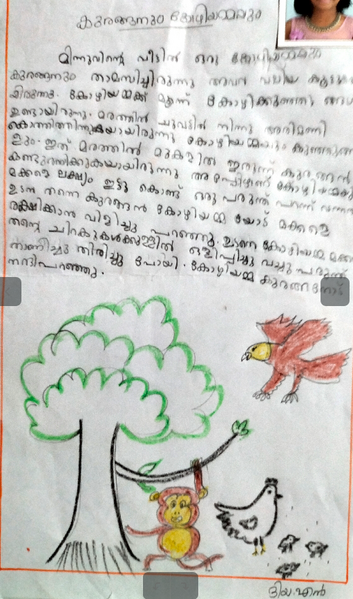 കുരങ്ങനും കോഴിയമ്മയും
മിന്നുവിന്റെ വീട്ടിൽ ഒരു കോഴിയമ്മയും
കുരങ്ങനും താമസിച്ചിരുന്നു അവർ വലിയ കൂട്ടുകാ
രായിരുന്നു. കോഴിയമ്മക്ക് മൂന്ന് കോഴിക്കുഞ്ഞുങ്ങൾ
ഉണ്ടായിരുന്നു. മരത്തിൻ ചുവട്ടിൽ നിന്നു അരിമണി
കൊത്തിത്തിന്നുകയായിരുന്നു കോഴിയമ്മയും കുഞ്ഞുങ്ങ
ളും. ഇത് മരത്തിൻ മുകളിൽ ഇരുന്ന് കുരങ്ങൻ
കണ്ടുരസിക്കുകയായിരുന്നു അപ്പോഴാണ് കോഴിയമ്മകു
മക്കളെ ലക്ഷ്യം ഇട്ടു കൊണ്ട് ഒരു പരുന്ത് പറന്ന് വന്നത്
ഉടൻ തന്നെ കുരങ്ങൻ കോഴിയമ്മ യോട് മക്കളെ
രക്ഷിക്കാൻ വിളിച്ചു പറഞ്ഞു. ഉടനെ കോഴിയമ്മ മക്ക
തന്റെ ചിറകുകൾക്കുള്ളിൽ ഒളിപ്പിച്ചു വച്ചു പരുന്ത്
നാണിച്ചു തിരിച്ചു പോയി. കോഴിയമ്മ കുരങ്ങനോട്
നന്ദിപറഞ്ഞു.
ദിയ.എൻ